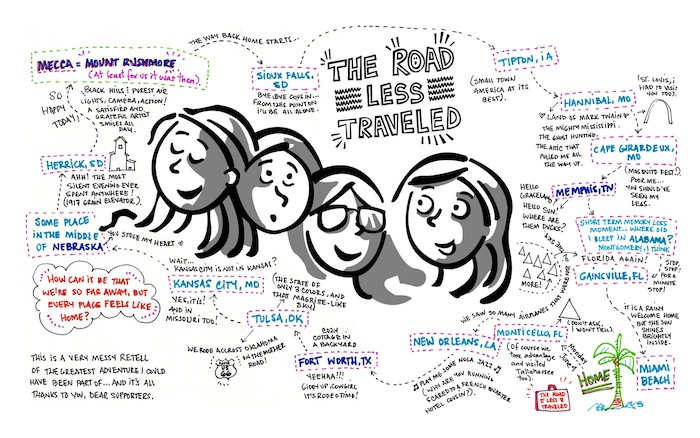 THE ROAD
LESS
TRAVELED
THE WAY BACK HOME STARTS...
MECCA = MOUNT RUSHMORE
(At least for us it was then).
SO HAPPY TODAY!
BLACK HILLS! PUREST AIR
LIGHTS, CAMERA, ACTION!
A SATISFIED AND
GRATEFUL ARTIST
SMILES ALL
DAY.
SIOUX FALLS,
SD
BYE BYE COUSIN...
FROM THIS POINT ON
I'LL BE ALL ALONE.
TIPTON, iA
(SMALL TOWN
AMERICA AT ITS
BEST).
(ST. LOUIS, I
HAD TO VISIT
YOU TOO).
HANNIBAL, MO
LAND OF MARK TWAIN
THE MIGHTY MISSISSIPPI
THE GHOST HUNTING.
THE ATTIC THAT
PULLED ME ALL
THE WAY UP.
CAPE GIRARDEUX,
MO
(MOSQUITO FEST!).
POOR ME...
YOU SHOULD'VE
SEEN MY
LEGS.
HERRICK, SD
AHH! THE MOST
SILENT EVENING EVER
SPENT ANYWHERE!
(1917 GRAIN ELEVATOR).
HELLO
GRACELAND!
HELLO SUN!
WHERE ARE
THEM DUCKS?
MEMPHIS, TN
SOME PLACE
IN THE MIDDLE
OF NEBRASKA
YOU STOLE MY HEART
SHORT TERM MEMORY LOSS
MOMENT... WHERE DID
I SLEEP IN ALABAMA?
MONTGOMERY, I THINK
MORE!
FLORIDA AGAIN!
GAINSVILLE, FL
STOP,
STOP!
FOR A
MINUTE
STOP!
WAIT...
KANSAS CITY IS NOT IN KANSAS?
KANSAS CITY, MO
YES, iT iS!
AND IN
MISSOURI TOO!
(THE STATE OF
ONLY 3 COLORS, AND
THAT MAGRITTE-LIKE
SKY)
HOW CAN IT BE THAT
WE'RE SO FAR AWAY, BUT
EVERY PLACE FEELS LIKE
HOME?
TULSA, OK
WE RODE ACCROSS OKLAHOMA
IN THE MOTHER
ROAD!
COZY
COTTAGE IN
A BACKYARD
FORT WORTH, TX
YEEHAA!!!
GIDDY UP, COWGIRL
IT'S RODEO TIME!
WE SAW SO MANY AIRPLANES
NEW ORLEANS, LA
PLAY ME SOME NOLA JAZZ
(WHY ARE YOU RUNNING
SCARED TO A FRENCH QUARTER
HOTEL COUSIN?).
MONTICELLO, FL
(OF COURSE WE
TOOK ADVANTAGE
AND VISITED
TALLAHASSEE
TOO).
(DON'T ASK,
I WON'T TELL).
IT IS A RAINY
WELCOME HOME
BUT THE SUN
SHINES
BRIGHTLY
INSIDE.
HOME
MIAMI
BEACH
THE ROAD
LESS
TRAVELED
THIS IS A VERY MESSY RETELL
OF THE GREATEST ADVENTURE I COULD
HAVE BEEN PART OF... AND IT'S ALL
THANKS TO YOU, DEAR SUPPORTERS.